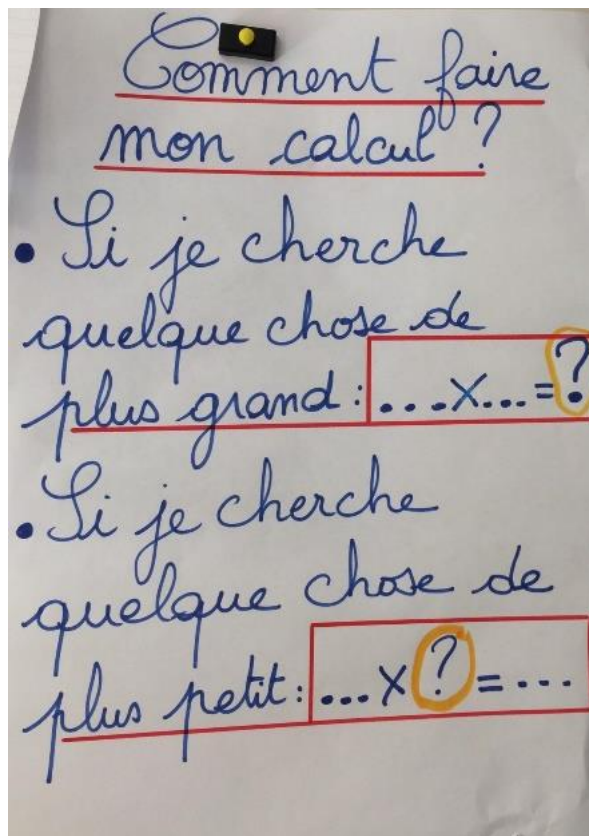 Comment faire
mon calcul ?
• Si je cherche
quelque chose de
plus grand : ...x... = ?
• Si je cherche
quelque chose de
plus petit : ...x ? = ...